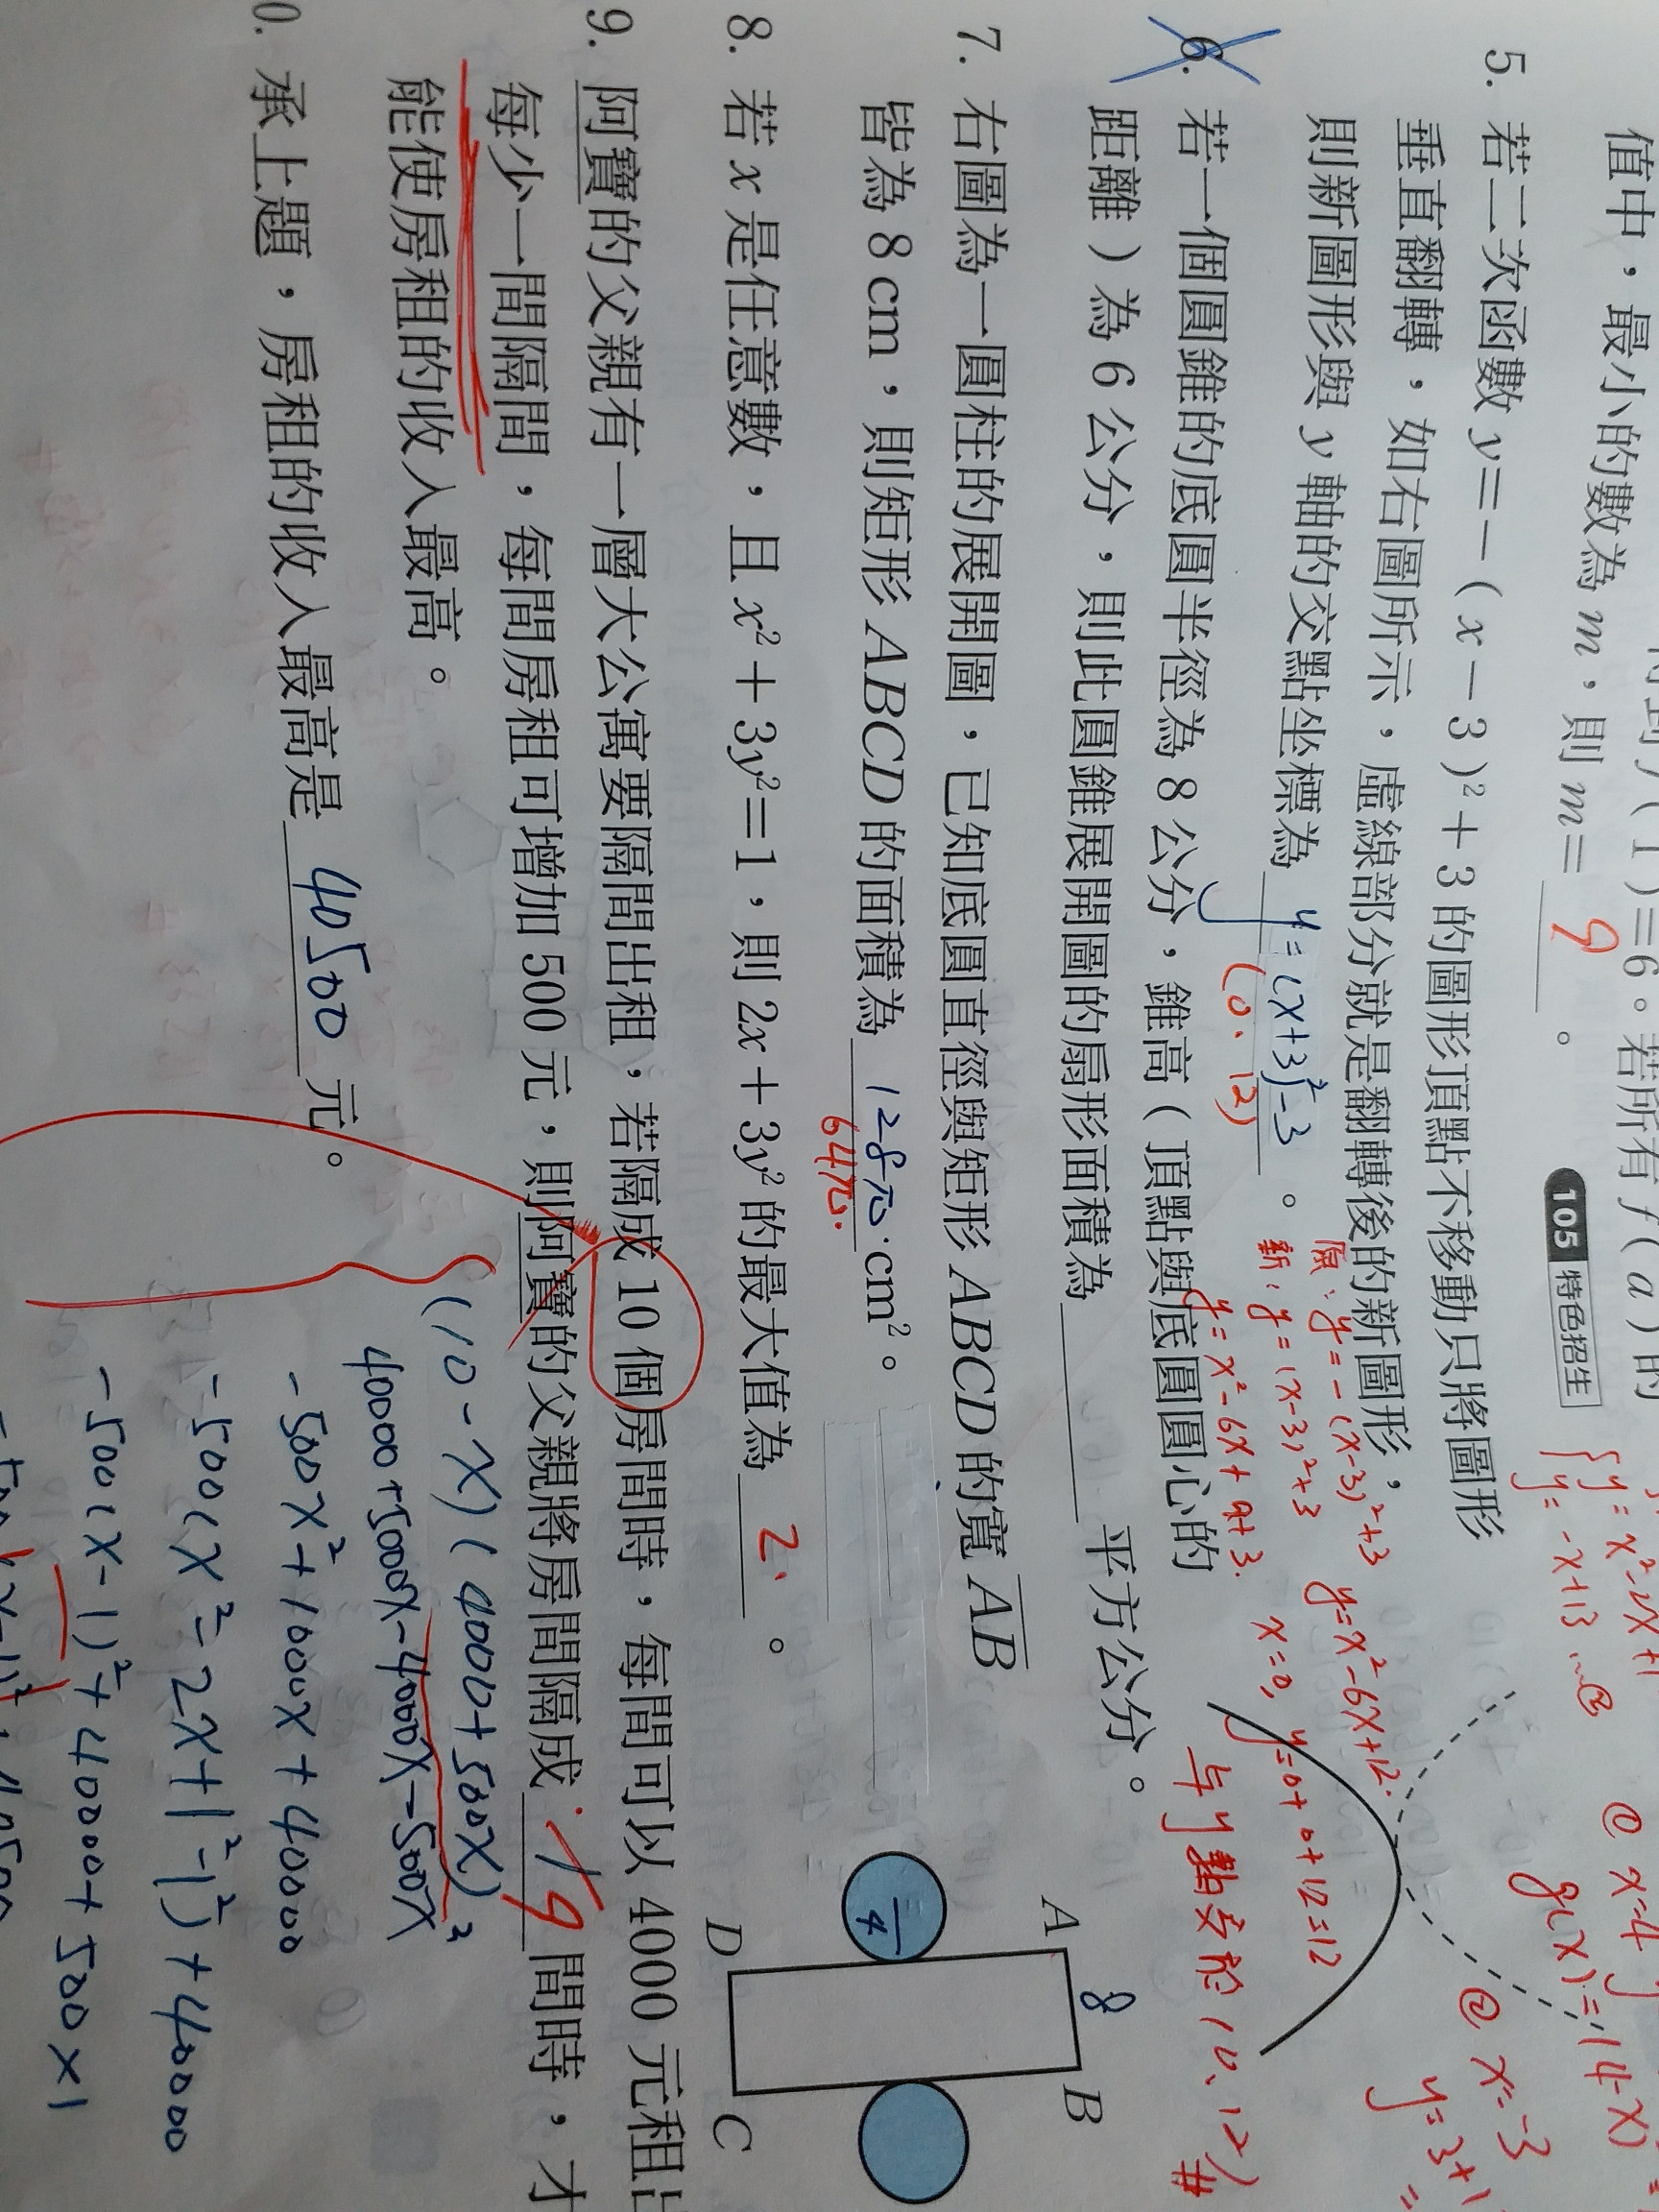 值中，最小的數為 m，則 m= 9 。
105 特色招生
{ y=x²-2x+1
y=-x+13 …②
5. 若二次函數 y=-(x-3)²+3 的圖形頂點不移動只將圖形
垂直翻轉，如右圖所示，虛線部分就是翻轉後的新圖形，
則新圖形與 y 軸的交點坐標為 y=(x+3)²-3 。
(0、12)
原、y=-(x-3)²+3
新、y=(x-3)²+3
y=x²-6x+9+3.
y=x²-6x+12.
x=0, y=0+0+12=12
@ x=4
g(x)=14-x)
@ x=-3
y=3+1
6. 若一個圓錐的底圓半徑為 8 公分，錐高（頂點與底圓圓心的
距離）為 6 公分，則此圓錐展開圖的扇形面積為 平方公分。
7. 右圖為一圓柱的展開圖，已知底圓直徑與矩形 ABCD 的寬 AB
皆為 8 cm，則矩形 ABCD 的面積為 128π·cm²。
64π.
A
8
B
4
D
C
8. 若 x 是任意數，且 x²+3y²=1，則 2x+3y² 的最大值為 2. 。
9. 阿寶的父親有一層大公寓要隔間出租，若隔成 10 個房間時，每間可以 4000 元租出
每少一間隔間，每間房租可增加 500 元，則阿寶的父親將房間隔成 1 9 間時，才
能使房租的收入最高。
(10-x)(4000+500x)
40000+5000x-4000x-500x²
-500x²+1000x+40000
-500(x²-2x+1²-1²)+40000
-500(x-1)²+40000+500×1
0. 承上題，房租的收入最高是 40500 元。